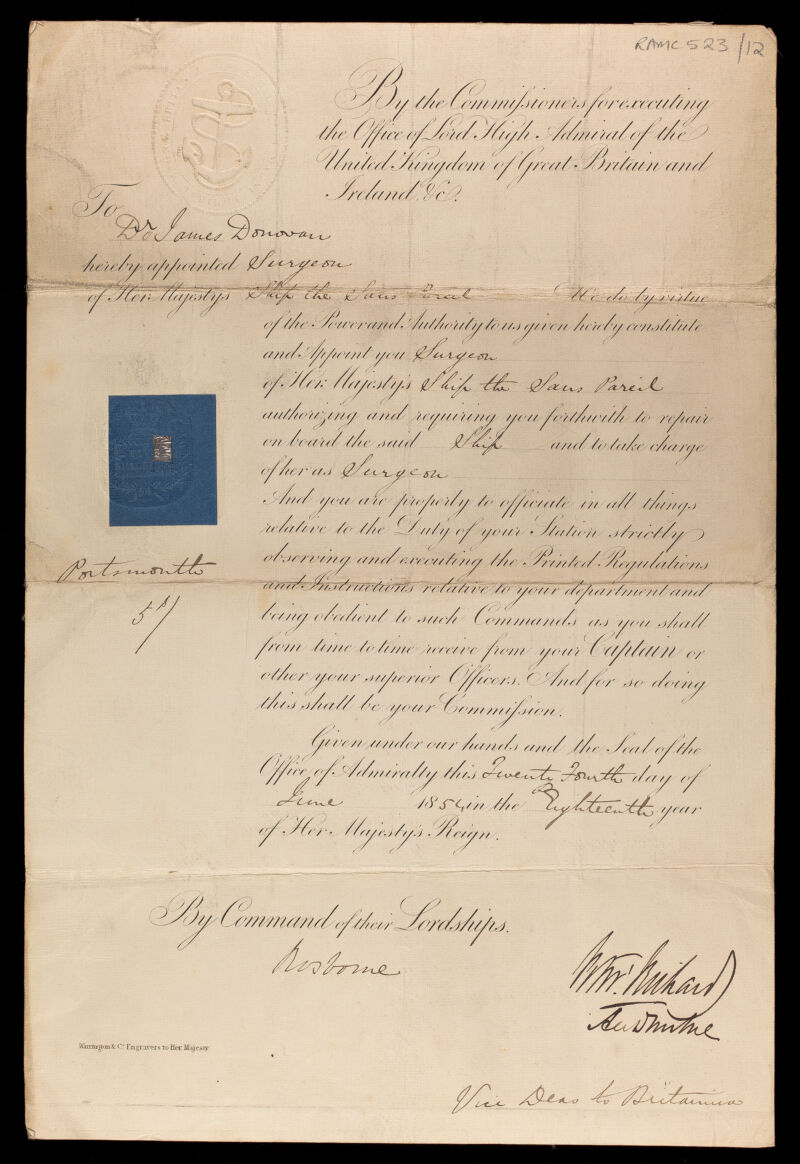 RAMC 523/12
By the Commissioners for executing
the Office of Lord High Admiral of the
United Kingdom of Great Britain and
Ireland &c.
To
Dr James Donovan
hereby appointed Surgeon
of Her Majesty's Ship the Sans Pareil We do by virtue
of the Power and Authority to us given hereby constitute
and Appoint you Surgeon
of Her Majesty's Ship the Sans Pareil
authorizing and requiring you forthwith to repair
on board the said Ship and to take charge
of her as Surgeon
And you are properly to officiate in all things
relative to the Duty of your Station strictly
observing and executing the Printed Regulations
and Instructions relative to your department and
being obedient to such Commands as you shall
from time to time receive from your Captain or
other your superior Officers. And for so doing
this shall be your Commission.
Portsmouth
5s/
Given under our hands and the Seal of the
Office of Admiralty this Twenty Fourth day of
June 1854 in the Eighteenth year
of Her Majesty's Reign.
By Command of their Lordships.
Rosborne
Worington & Co. Engravers to Her Majesty
Vice Deas to Britannia